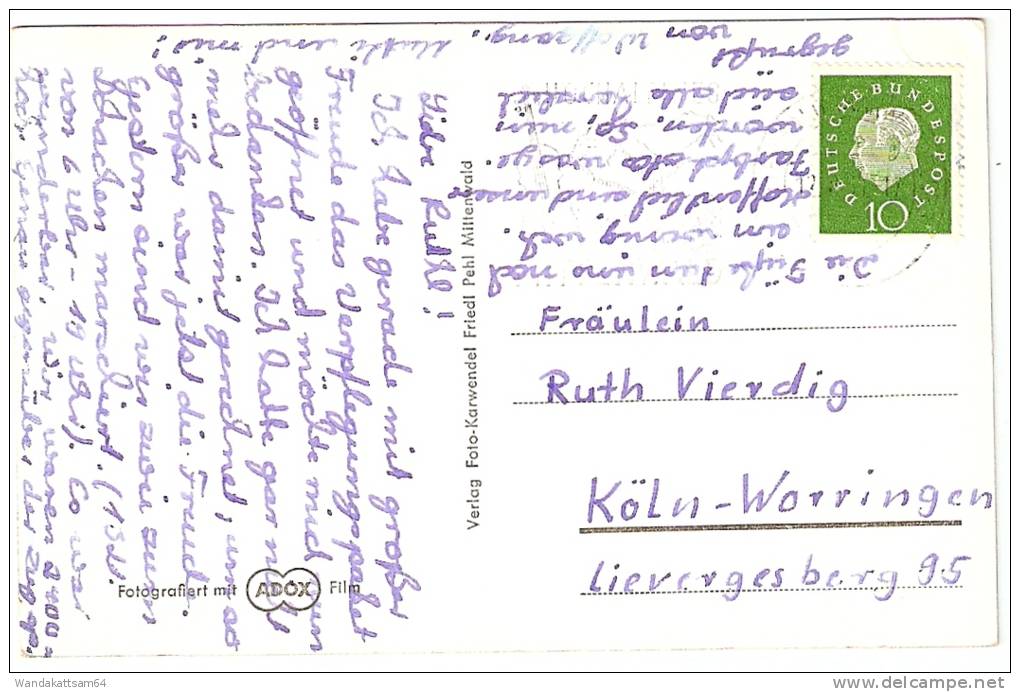 Liebe Ruth!
Ich habe gerade mit großer
Freude das Verpflegungspaket
geöffnet und möchte mich nun
bedanken. Ich habe gar nicht
mehr damit gerechnet, um so
größer war jetzt die Freude.
Gestern sind wir zwei zum
Schachen marschiert. (13 St.
von 6 Uhr - 19 Uhr). Es war
wunderbar, wir waren 2400
hoch, genau gegenüber der Zugsp.
Die Füße tun uns noch
ein wenig weh.
Hoffentlich sind unsere
Farbfotos
worden. So, nun
seid alle herzlich
gegrüßt
von Wolfgang.
Mutti und mir!
Verlag Foto-Karwendel Friedl Pehl Mittenwald
Fotografiert mit ADOX Film
DEUTSCHE BUNDESPOST
10
Fräulein
Ruth Vierdig
Köln-Worringen
Lievergesberg 95
Wandakattsam64
delcampe.net